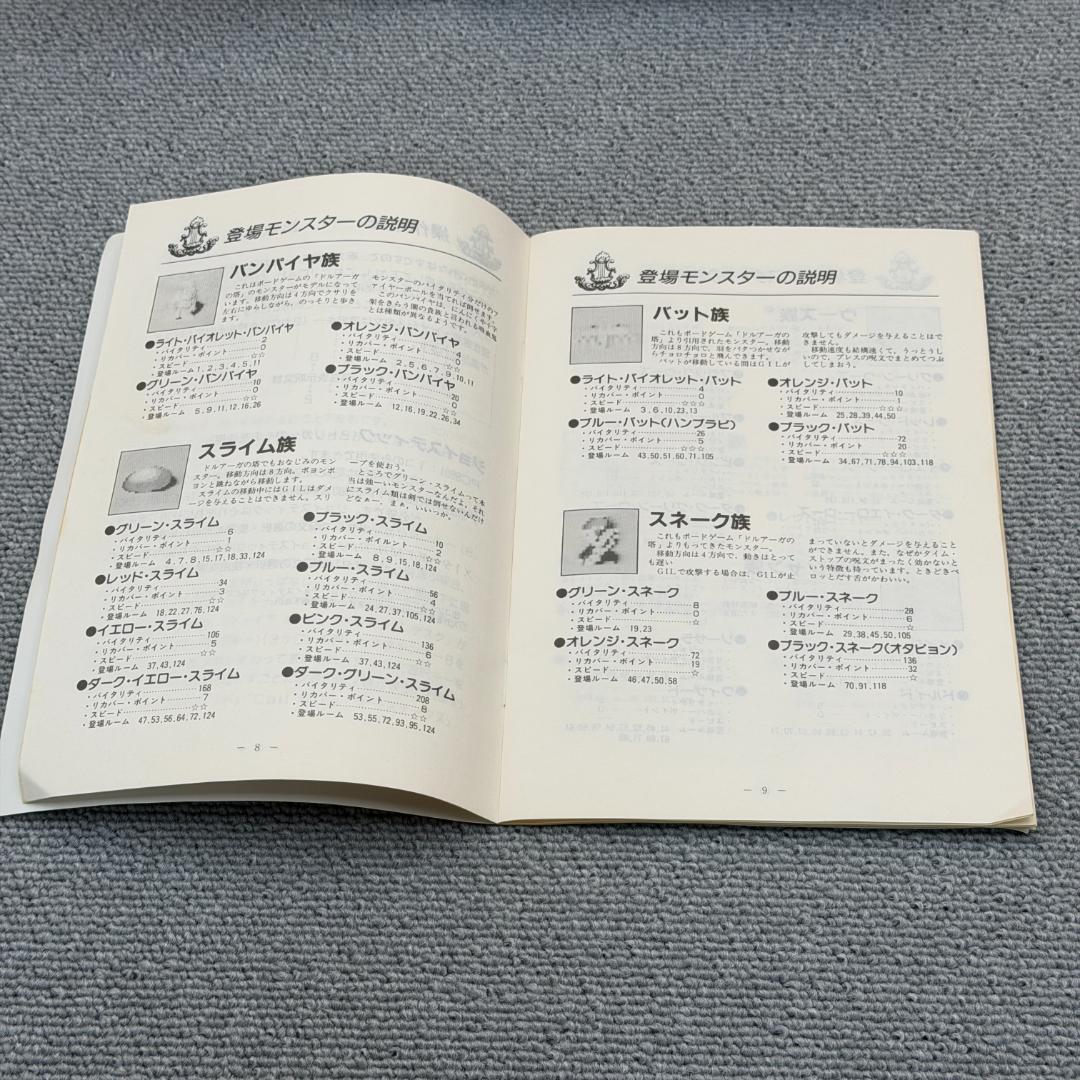 登場モンスターの説明
バンパイヤ族
これはボードゲームの「ドルアーガ
の塔」のモンスターがモデルになって
います。移動方向は4方向でクサリを
左右にゆらしながら、のっそりと歩き
ます。
モンスターのバイタリティ分だけのフ
ァイヤーボールを当てれば倒せます。
このバンパイヤは、にんにくや十字
架をきらう闇の貴族と言われる吸血鬼
とは種類が異なるようです。
●ライト・バイオレット・バンパイヤ
・バイタリティ………2
・リカバー・ポイント………0
・スピード………☆
・登場ルーム 1,2,3,4,5,11
●グリーン・バンパイヤ
・バイタリティ………10
・リカバー・ポイント………0
・スピード………☆☆
・登場ルーム 5,9,11,12,16,26
●オレンジ・バンパイヤ
・バイタリティ………4
・リカバー・ポイント………0
・スピード………☆☆
・登場ルーム 2,5,6,7,9,10,11
●ブラック・バンパイヤ
・バイタリティ………20
・リカバー・ポイント………0
・スピード………☆☆
・登場ルーム 12,16,19,22,26,34
スライム族
ドルアーガの塔でもおなじみのモン
スター。移動方向は8方向。ボヨンボ
ヨンと跳ねながら移動します。
スライムの移動中にはGILはダメ
ージを与えることはできません。スリ
ープを使おう。
ところでグリーン・スライムって本
当は強いモンスターなんだよ。それ
にスライム類は剣では倒せないんだけ
どなぁー。まぁ、いいっか。
●グリーン・スライム
・バイタリティ………6
・リカバー・ポイント………1
・スピード………☆☆
・登場ルーム 4,7,8,15,17,18,33,124
●レッド・スライム
・バイタリティ………34
・リカバー・ポイント………3
・スピード………☆☆
・登場ルーム 18,22,27,76,124
●イエロー・スライム
・バイタリティ………106
・リカバー・ポイント………5
・スピード………☆☆
・登場ルーム 37,43,124
●ダーク・イエロー・スライム
・バイタリティ………168
・リカバー・ポイント………7
・スピード………☆☆
・登場ルーム 47,53,56,64,72,124
●ブラック・スライム
・バイタリティ………10
・リカバー・ポイルント………2
・スピード………☆☆
・登場ルーム 8,9,15,16,124
●ブルー・スライム
・バイタリティ………56
・リカバー・ポイント………4
・スピード………☆☆
・登場ルーム 24,27,37,105,124
●ピンク・スライム
・バイタリティ………136
・リカバー・ポイント………6
・スピード………☆☆
・登場ルーム 37,43,124
●ダーク・グリーン・スライム
・バイタリティ………208
・リカバー・ポイント………8
・スピード………☆☆
・登場ルーム 53,55,72,93,95,124
― 8 ―
登場モンスターの説明
バット族
これもボードゲーム「ドルアーガの
塔」より引用されたモンスター。移動
方向は8方向で、羽をバタつかせなが
らチョロチョロと飛んできます。
バットが移動している間はGILが
攻撃してもダメージを与えることはで
きません。
移動速度も結構速くて、うっとうし
いので、ブレスの呪文でまとめてつぶ
してしまおう。
●ライト・バイオレット・バット
・バイタリティ………4
・リカバー・ポイント………0
・スピード………☆☆☆
・登場ルーム 3,6,10,23,13
●ブルー・バット(ハンプラビ)
・バイタリティ………26
・リカバー・ポイント………5
・スピード………☆☆☆☆
・登場ルーム 43,50,51,60,71,105
●オレンジ・バット
・バイタリティ………10
・リカバー・ポイント………1
・スピード………☆☆☆
・登場ルーム 25,28,39,44,50
●ブラック・バット
・バイタリティ………72
・リカバー・ポイント………20
・スピード………☆☆☆
・登場ルーム 34,67,71,78,94,103,118
スネーク族
これもボードゲーム「ドルアーガの
塔」よりもってきたモンスター。
移動方向は4方向で、動きはとって
も遅い
GILで攻撃する場合は、GILが止
まっていないとダメージを与えること
ができません。また、なぜかタイム・
ストップの呪文がまったく効かないと
いう特徴も持っています。ときどきペ
ロッとだす舌がかわいい。
●グリーン・スネーク
・バイタリティ………8
・リカバー・ポイント………0
・スピード………☆
・登場ルーム 19,23
●オレンジ・スネーク
・バイタリティ………72
・リカバー・ポイント………19
・スピード………☆
・登場ルーム 46,47,50,58
●ブルー・スネーク
・バイタリティ………28
・リカバー・ポイント………6
・スピード………☆
・登場ルーム 29,38,45,50,105
●ブラック・スネーク(オタピョン)
・バイタリティ………136
・リカバー・ポイント………32
・スピード………☆
・登場ルーム 70,91,118
― 9 ―